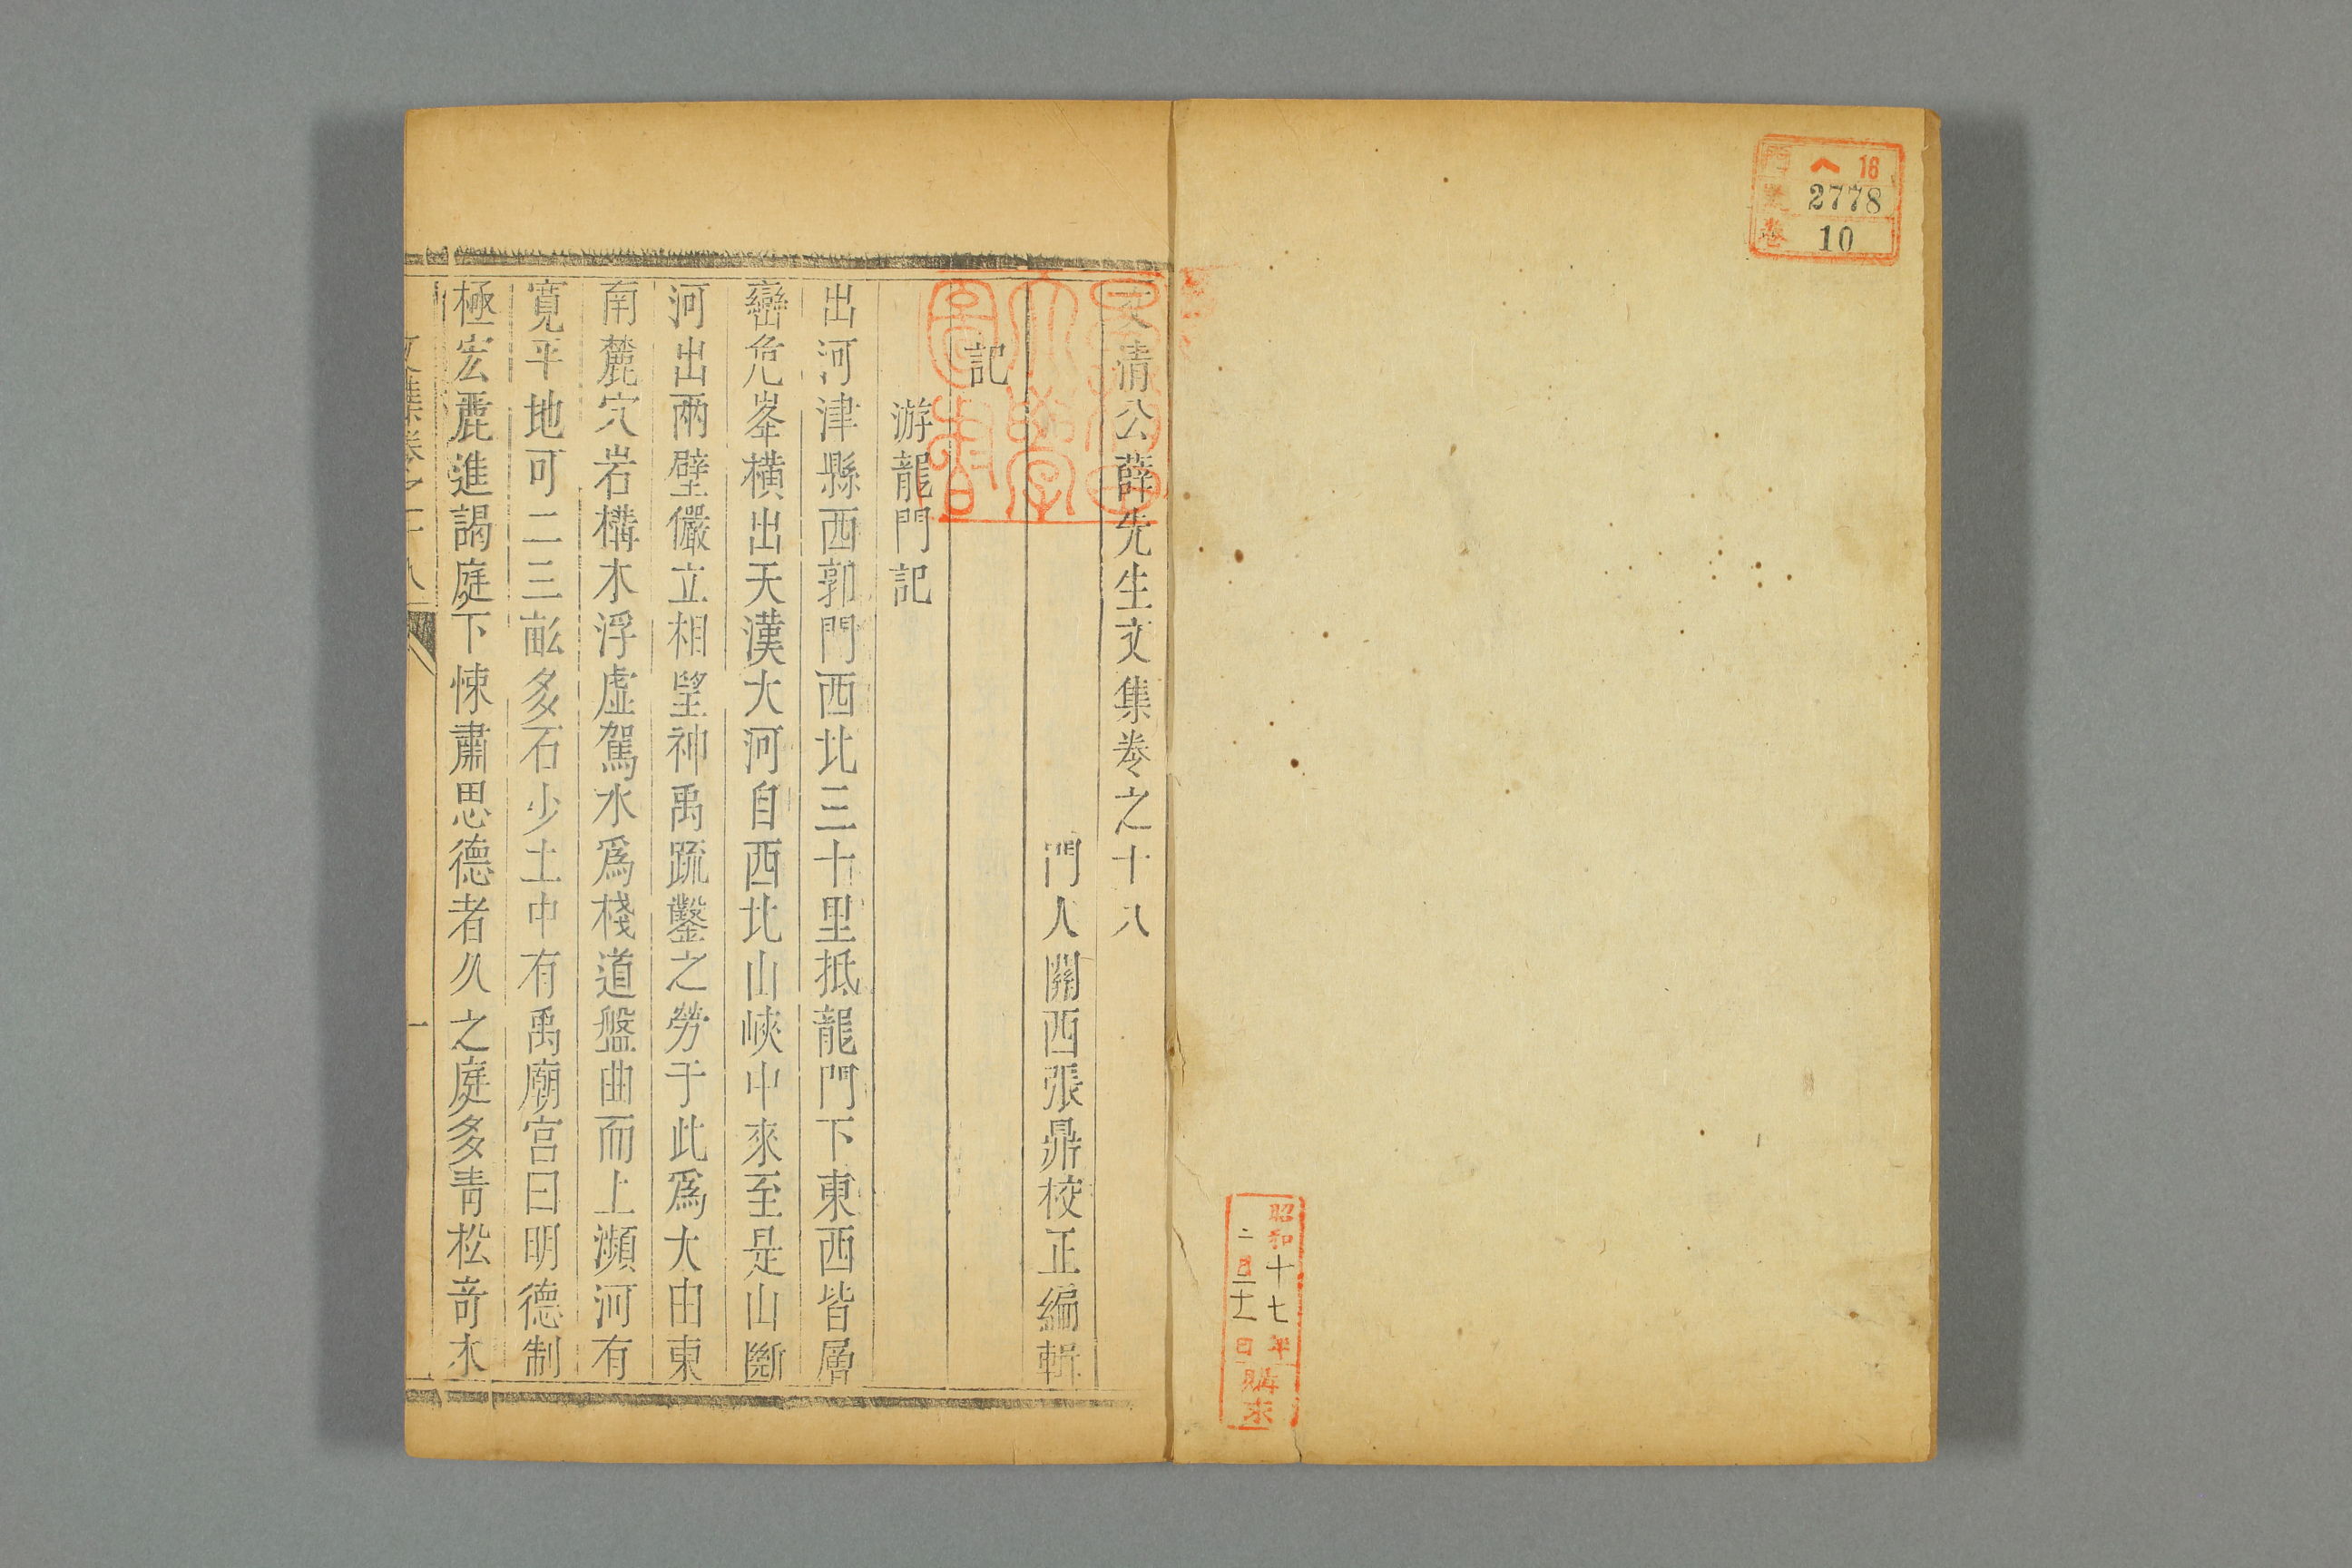 ヘ 16
2778
10
卷
昭和十七年
二月二十一日
購求
文清公薛先生文集卷之十八
門人關西張鼎校正編輯
記
游龍門記
出河津縣西郭門西北三十里抵龍門下東西皆層
巒危峯橫出天漢大河自西北山峽中來至是山斷
河出兩壁儼立相望神禹疏鑿之勞于此爲大由東
南麓穴岩構木浮虛駕水爲棧道盤曲而上瀕河有
寬平地可二三畝多石少土中有禹廟宮曰明德制
極宏麗進謁庭下悚肅思德者久之庭多青松竒木
文集卷之十八
一